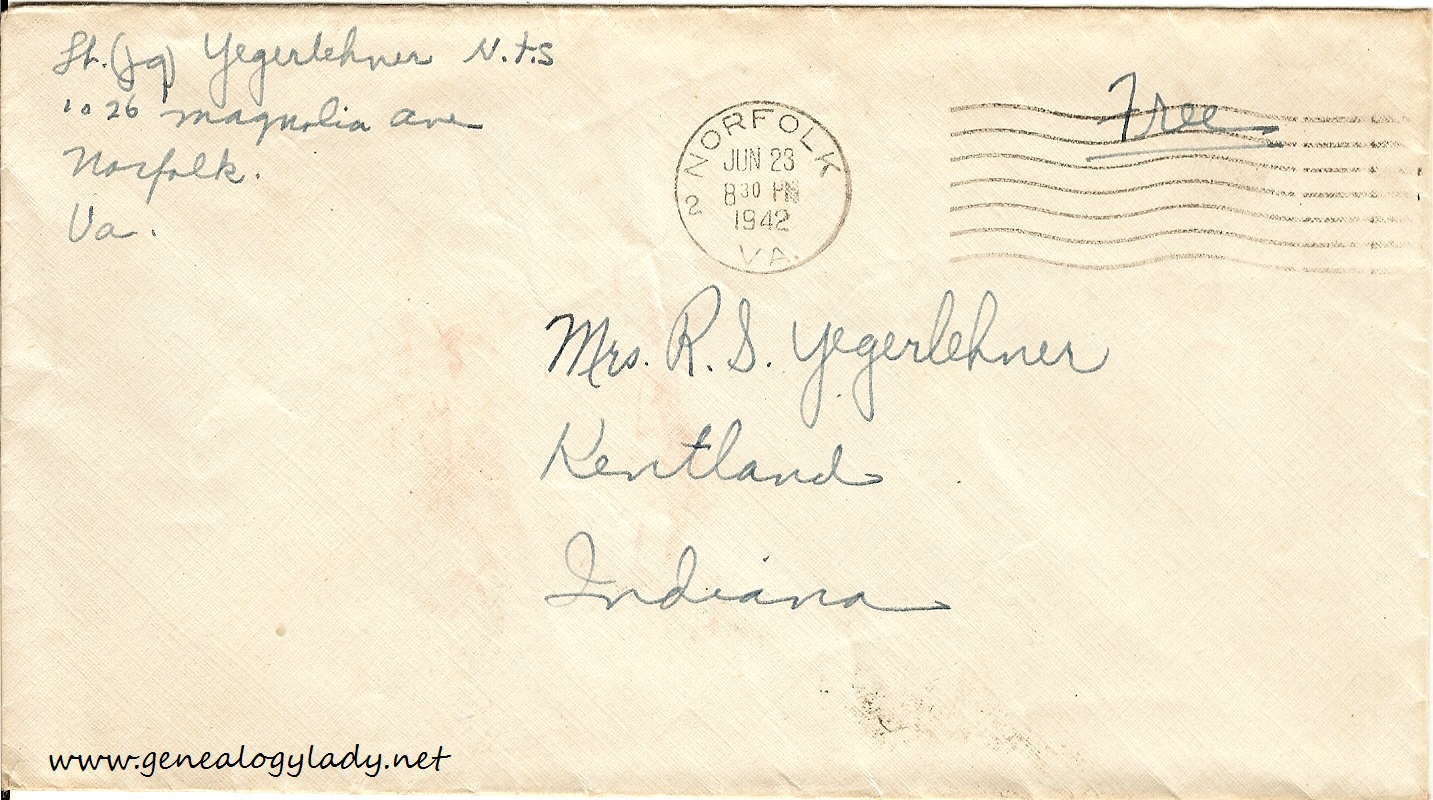 Lt. (jg) Yegerlehner N.T.S
1026 Magnolia ave
Norfolk.
Va.
2 NORFOLK VA.
JUN 23
8 30 PM
1942
Free
Mrs. R. S. Yegerlehner
Kentland
Indiana
www.genealogylady.net